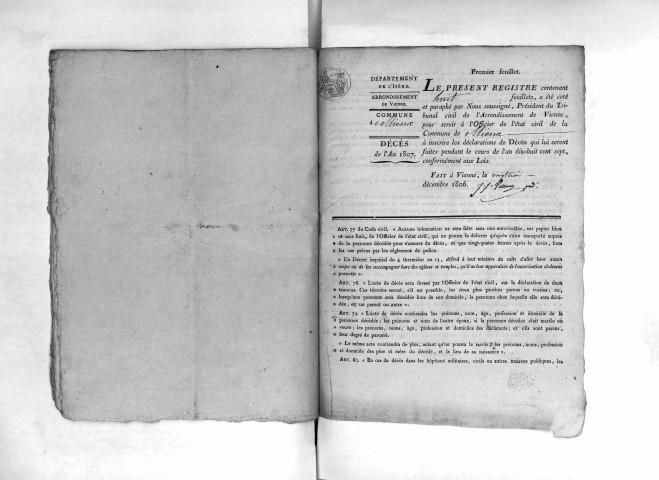 DÉPARTEMENT
DE L'ISÈRE.
ARRONDISSEMENT
DE VIENNE.
COMMUNE
DÉCÈS
de l'An 1807.
Premier feuillet.
LE PRÉSENT REGISTRE contenant
huit feuillets, a été coté
et paraphé par Nous soussigné, Président du Tri-
bunal civil de l'Arrondissement de Vienne,
pour servir à l'Officier de l'état civil de la
Commune de
à inscrire les déclarations de Décès qui lui seront
faites pendant le cours de l'an dix-huit cent sept,
conformément aux Lois.
FAIT à Vienne, le
décembre 1806.
ART. 77 du Code civil. « Aucune inhumation ne sera faite sans une autorisation, sur papier libre
» et sans frais, de l'Officier de l'état civil, qui ne pourra la délivrer qu'après s'être transporté auprès
» de la personne décédée pour s'assurer du décès, et que vingt-quatre heures après le décès, hors
» les cas prévus par les réglemens de police.
» Un Décret impérial du 4 thermidor an 13, défend à tout ministre du culte d'aller lever aucun
» corps ou de les accompagner hors des églises et temples, qu'il ne leur apparaisse de l'autorisation ci-dessus
» prescrite ».
ART. 78. « L'acte de décès sera dressé par l'Officier de l'état civil, sur la déclaration de deux
» témoins. Ces témoins seront, s'il est possible, les deux plus proches parens ou voisins; ou,
» lorsqu'une personne sera décédée hors de son domicile, la personne chez laquelle elle sera décé-
» dée, et un parent ou autre ».
ART. 79. « L'acte de décès contiendra les prénoms, nom, âge, profession et domicile de la
» personne décédée; les prénoms et nom de l'autre époux, si la personne décédée était mariée ou
» veuve; les prénoms, noms, âge, profession et domiciles des déclarants; et s'ils sont parens,
» leur degré de parenté.
» Le même acte contiendra de plus, autant qu'on pourra le savoir, les prénoms, noms, profession
» et domicile des père et mère du décédé, et le lieu de sa naissance ».
ART. 80. « En cas de décès dans les hôpitaux militaires, civils ou autres maisons publiques, les